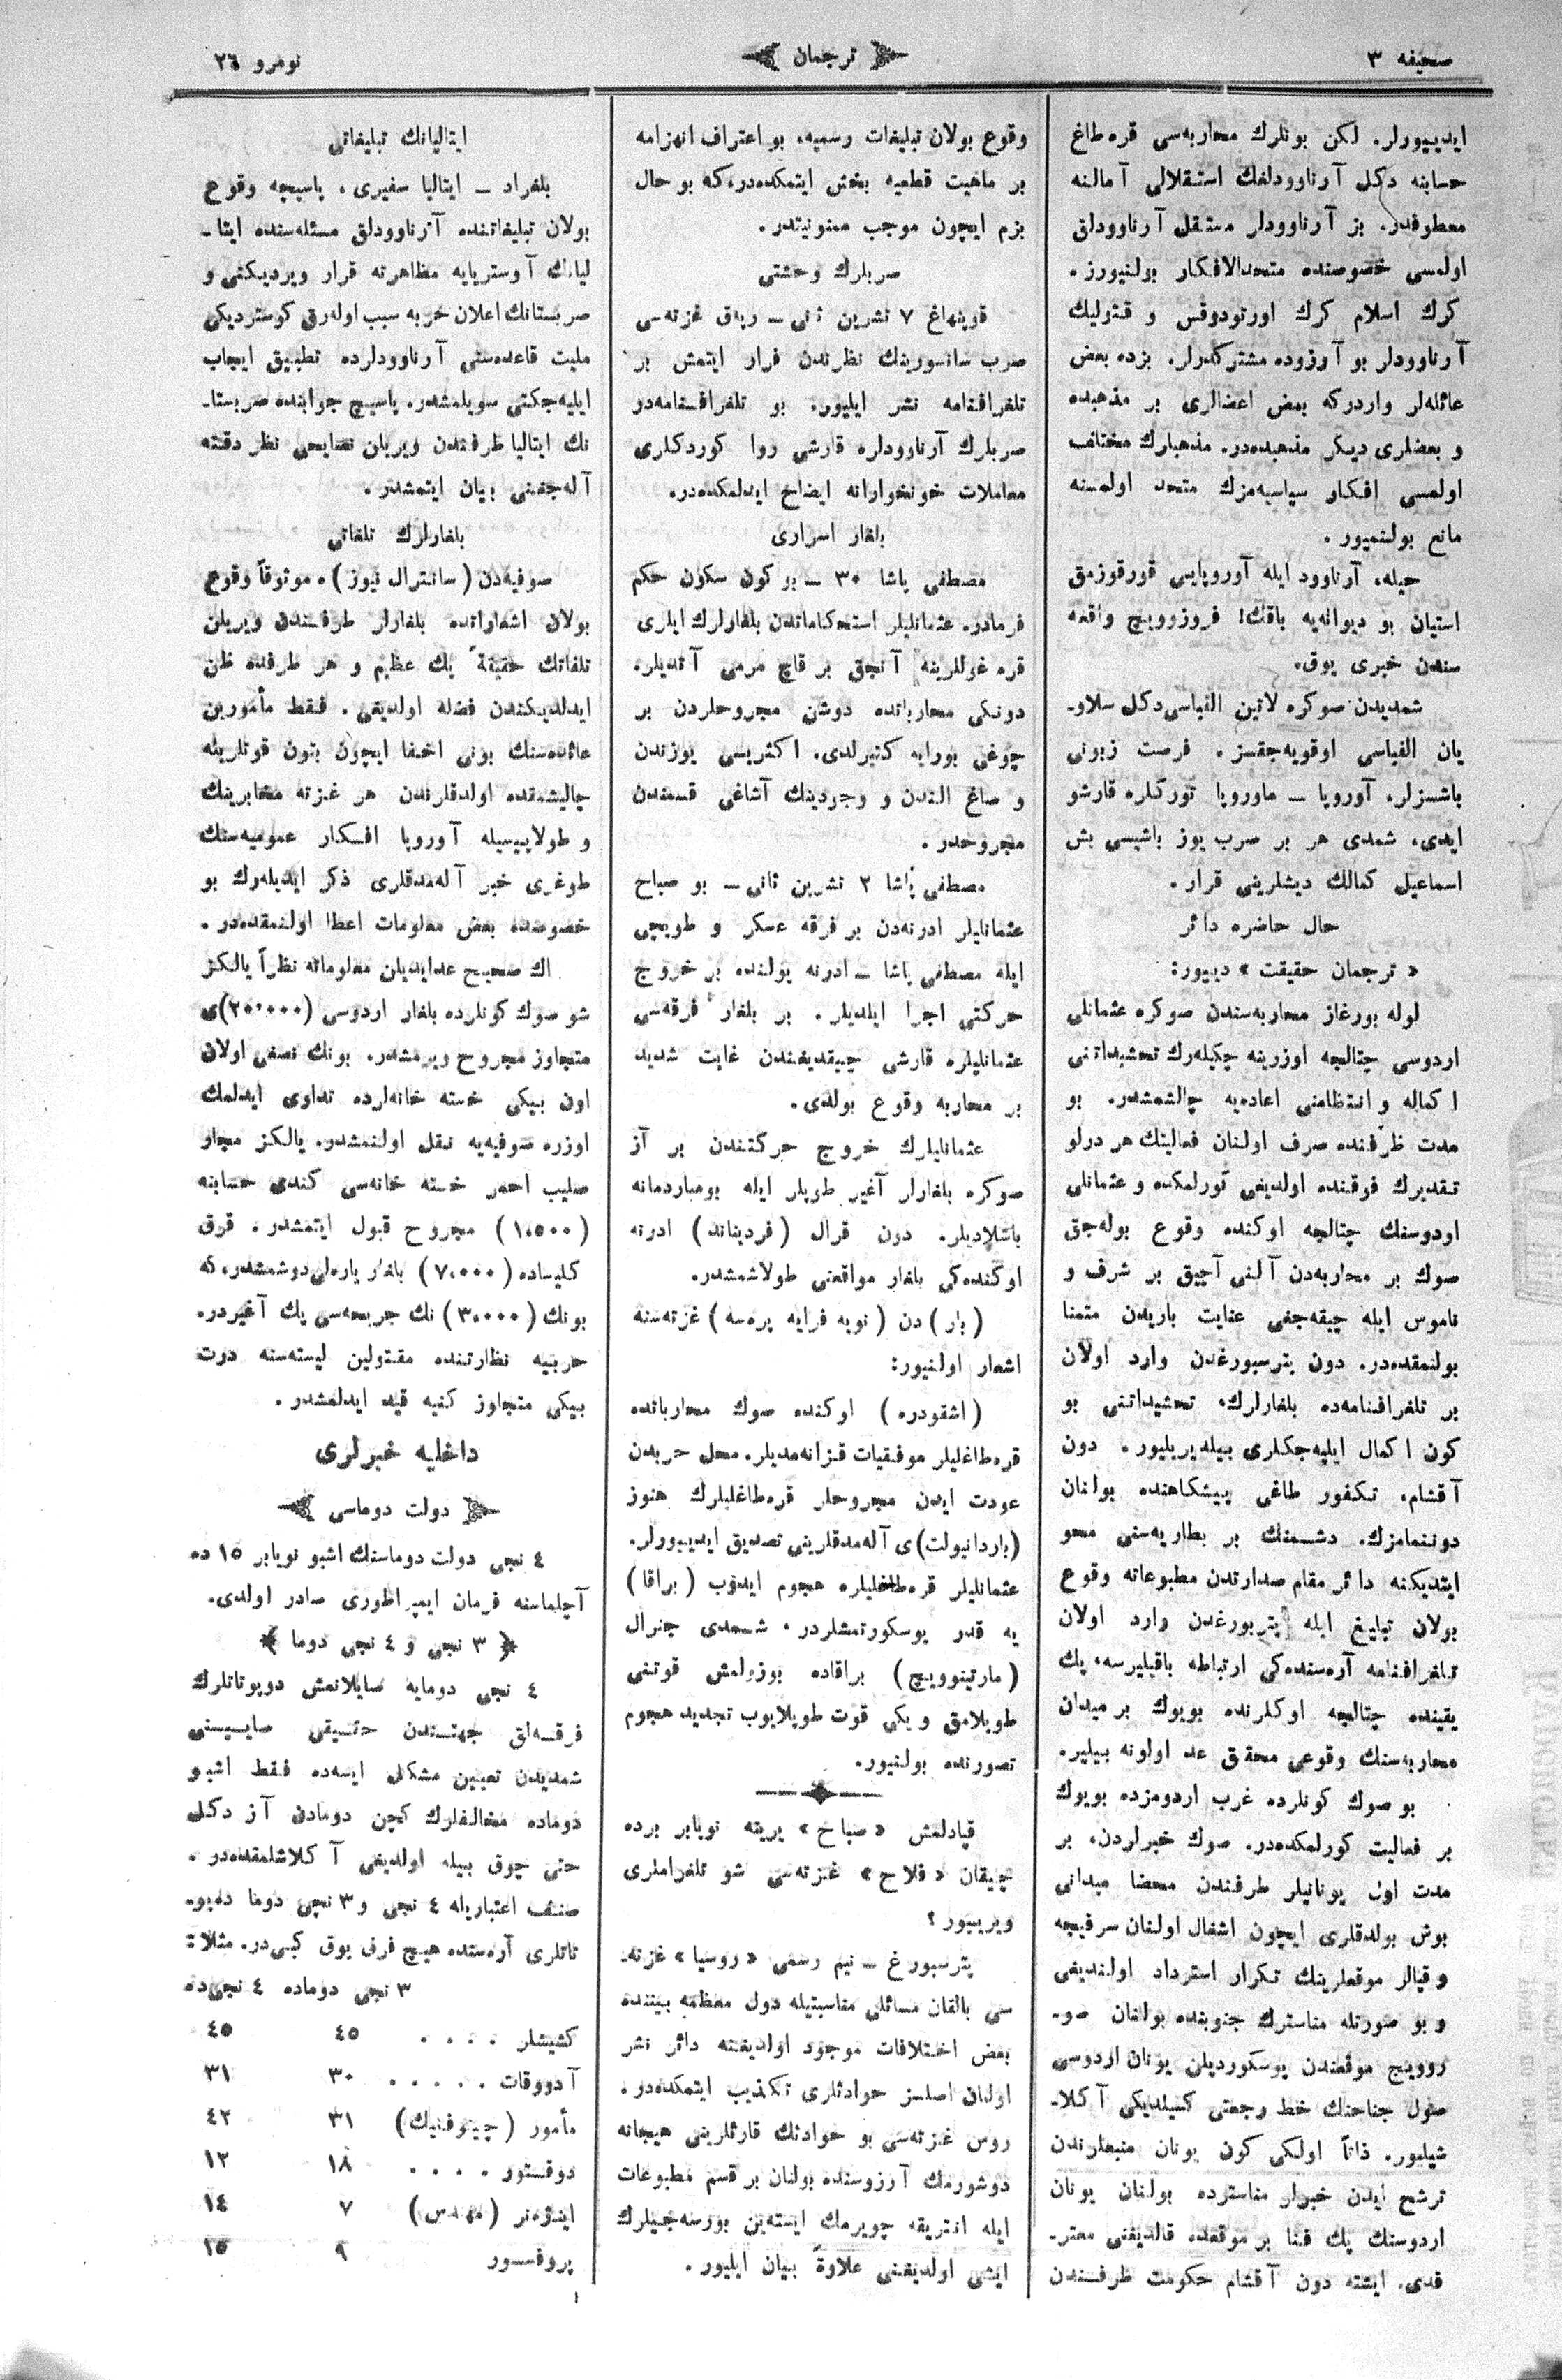 صحیفه ۳
ترجمان
نومرو ٢٦
ایدییورلر. لكن بونلرك محاربه‌سی قره‌طاغ
حسابنه دكل آرناوودلغك استقلالی آمالنه
معطوفدر. بز آرناوودلر مستقل آرناوودلق
اولمسی خصوصنده متحدالافكار بولنیورز.
كرك اسلام كرك اورتودوقس و قتولیك
آرناوودلر بو آرزوده مشتركدرلر. بزده بعض
عائله‌لر واردركه بعض اعضالری بر مذهبده
و بعضلری دیكر مذهبده‌در. مذهبلرك مختلف
اولمسی افكار سیاسیه‌مزك متحد اولمسنه
مانع بولنمیور.
حیله، آرناوود ایله آوروپایی قورقوزمق
استیان بو دیوانه‌یه باقك! فروزوویچ واقعه
سندن خبری یوق.
شمدیدن صوكره لاتین الفباسی دكل سلاو-
یان الفباسی اوقویه‌جقسز. فرصت زبونی
باشسزلر، آوروپا ـ ماوروپا توركلره قارشو
ایدی، شمدی هر بر صرب یوز باشیسی بش
اسماعیل كمالك دیشلرینی قرار.
حال حاضره دائر
« ترجمان حقیقت » دییور:
لوله بورغاز محاربه‌سندن صوكره عثمانلی
اردوسی چتالجه اوزرینه چكیله‌رك تحشیداتنی
اكماله و انتظامنی اعاده‌یه چالشمشدر. بو
مدت ظرفنده صرف اولنان فعالیتك هر درلو
تقدیرك فوقنده اولدیغی كورلمكده و عثمانلی
اردوسنك چتالجه اوكنده وقوع بوله‌جق
صوك بر محاربه‌دن آلنی آچیق بر شرف و
ناموس ایله چیقه‌جغی عنایت باریدن متمنا
بولنمقده‌در. دون پترسبورغدن وارد اولان
بر تلغرافنامه‌ده بلغارلرك، تحشیداتنی بو
كون اكمال ایلیه‌جكلری بیلدیریلیور. دون
آقشام، تكفور طاغی پیشكاهنده بولنان
دوننمامزك. دشمنك بر بطاریه‌سنی محو
ایتدیكنه دائر مقام صدارتدن مطبوعاته وقوع
بولان تبلیغ ایله پتربورغدن وارد اولان
تلغرافنامه آره‌سنده‌كی ارتباطه باقیلیرسه، پك
یقینده چتالجه اوكلرنده بویوك بر میدان
محاربه‌سنك وقوعی محقق عد اولونه بیلیر.
بو صوك كونلرده غرب اردومزده بویوك
بر فعالیت كورلمكده‌در. صوك خبرلردن، بر
مدت اول یونانیلر طرفندن محضا میدانی
بوش بولدقلری ایچون اشغال اولنان سرفیجه
و قیالر موقعلرینك تكرار استرداد اولندیغی
و بو صورتله مناسترك جنوبنده بولنان صو-
روویچ موقعندن پوسكوردیلن یونان اردوسی
صول جناحنك خط رجعتی كسیلدیكی آكلا-
شیلیور. ذاتاً اولكی كون یونان منبعلرندن
ترشح ایدن خبرلر مناسترده بولنان یونان
اردوسنك پك فنا بر موقعده قالدیغنی معتر-
فدی. ایشته دون آقشام حكومت طرفندن
وقوع بولان تبلیغات رسمیه، بو اعتراف انهزامه
بر ماهیت قطعیه بخش ایتمكده‌در،كه بو حال
بزم ایچون موجب ممنونیتدر.
صربلرك وحشتی
قوپنهاغ ٧ تشرین ثانی ـ ریه‌ق غزته‌سی
صرب سانسورینك نظرندن فرار ایتمش بر
تلغرافنامه نشر ایلیور. بو تلغرافنامه‌در
صربلرك آرناوودلره قارشی روا كوردكلری
معاملات خونخوارانه ایضاح ایدلمكده‌در.
بلغار اسراری
مصطفی پاشا ٣٠ ـ بو كون سكون حكم
فرمادر. عثمانلیلر استحكاماتدن بلغارلرك ایلری
قره غوللرینه آنجق بر قاچ مرمی آتدیلر.
دونكی محارباتده دوشن مجروحلردن بر
چوغی بورایه كتیرلدی. اكثریسی یوزندن
و صاغ الندن و وجودینك آشاغی قسمندن
مجروحدر.
مصطفی پاشا ٢ تشرین ثانی ـ بو صباح
عثمانلیلر ادرنه‌دن بر فرقه عسكر و طوپچی
ایله مصطفی پاشا ـ ادرنه یولنده بر خروج
حركتی اجرا ایلدیلر. بر بلغار فرقه‌سی
عثمانلیلره قارشی چیقدیغندن غایت شدید
بر محاربه وقوع بولدی.
عثمانلیلرك خروج حركتندن بر آز
صوكره بلغارلر آغیر طوپلر ایله بومباردمانه
باشلادیلر. دون قرال (فردیناند) ادرنه
اوكنده‌كی بلغار مواقعنی طولاشمشدر.
(بار) دن (نویه فرایه پره‌سه) غزته‌سنه
اشعار اولنیور:
(اشقودره) اوكنده صوك محارباتده
قره‌طاغلیلر موفقیات قزانه‌مدیلر. محل حربدن
عودت ایدن مجروحلر قره‌طاغلیلرك هنوز
(باردانیولت)ی آله‌مدقلرینی تصدیق ایدییورلر.
عثمانلیلر قره‌طاغلیلره هجوم ایدوب (براقا)
یه قدر پوسكورتمشلردر. شمدی جنرال
(مارتینوویچ) براقاده بوزولمش قوتنی
طوپلامق و یكی قوت طوپلایوب تجدید هجوم
تصورنده بولنیور.
قپادلمش « صباح » یرینه نویابر برده
چیقان « فلاح » غزته‌سی شو تلغرامی
ویرییور؟
پترسبورغ ـ نیم رسمی « روسیا » غزته-
سی بالقان مسائلی مناسبتیله دول معظمه بیننده
بعض اختلافات موجود اولدیغنه دائر نشر
اولنان اصلسز حوادثلری تكذیب ایتمكده‌در.
روس غزته‌سی بو حوادثك قارئلرینی هیجانه
دوشورمك آرزوسنده بولنان بر قسم مطبوعات
ایله انتریقه چویرمك ایسته‌ین بورسه‌جیلرك
ایشی اولدیغنی علاوةً بیان ایلیور.
ایتالیانك تبلیغاتی
بلغراد ـ ایتالیا سفیری، پاسیچه وقوع
بولان تبلیغاتنده آرناوودلق مسئله‌سنده ایتا-
لیانك آوستریایه مظاهرته قرار ویردیكنی و
صربستانك اعلان حربه سبب اوله‌رق كوستردیكی
ملیت قاعده‌سنی آرناوودلرده تطبیق ایجاب
ایلیه‌جكنی سویلمشدر. پاسیچ جوابنده صربستا-
نك ایتالیا طرفندن ویریلن نصایحی نظر دقته
آله‌جغنی بیان ایتمشدر.
بلغارلرك تلفاتی
صوفیه‌دن (سانترال نیوز)ه موثوقاً وقوع
بولان اشعاراتده بلغارلر طرفندن ویریلن
تلفاتك حقیقةً پك عظیم و هر طرفده ظن
ایدلدیكندن فضله اولدیغی. فقط مأمورین
عائده‌سنك بونی اخفا ایچون بتون قوتلرینه
چالیشمقده اولدقلرندن هر غزته مخابرینك
و طولاییسیله آوروپا افكار عمومیه‌سنك
طوغری خبر آله‌مدقلری ذكر ایدیله‌رك بو
خصوصده بعض معلومات اعطا اولنمقده‌در.
اك صحیح عدایدیلن معلوماته نظراً یالكز
شو صوك كونلرده بلغار اردوسی (٢٠،٠٠٠)ی
متجاوز مجروح ویرمشدر. بونك نصفی اولان
اون بیكی خسته خانه‌لرده تداوی ایدلمك
اوزره صوفیه‌یه نقل اولنمشدر. یالكز مجار
صلیب احمر خسته خانه‌سی كندی حسابنه
(١،٥٠٠) مجروح قبول ایتمشدر. قرق
كلیساده (٧،٠٠٠) بلغار یاره‌لی دوشمشدر،كه
بونك (٣،٠٠٠) نك جریحه‌سی پك آغیردر.
حربیه نظارتنده مقتولین لیسته‌سنه درت
بیكی متجاوز كفیه قید ایدلمشدر.
داخلیه خبرلری
دولت دوماسی
٤ نجی دولت دوماسنك اشبو نویابر ١٥ ده
آچلماسنه فرمان ایمپراطوری صادر اولدی.
٣ نجی و ٤ نجی دوما
٤ نجی دومایه صایلانمش دوپوتاتلرك
فرقه‌لق جهتندن حقیقی صاییسنی
شمدیدن تعیین مشكل ایسه‌ده فقط اشبو
دوماده مخالفلرك كچن دومادن آز دكل
حتی چوق بیله اولدیغی آكلاشلمقده‌در.
صنف اعتباریله ٤ نجی و ٣ نچی دوما ده‌پو-
تاتلری آره‌سنده هیچ فرق یوق كبی‌در. مثلا:
٣ نجی دوماده ٤ نجی‌ده
كشیشلر . . . . ٤٥ ٤٥
آدووقات . . . . . ٣٠ ٣١
مأمور (چینوفنیك) ٣١ ٤٢
دوقتور . . . . ١٨ ١٢
اینژه‌نر (مهندس) ٧ ١٤
پروفسور ٩ ١٥